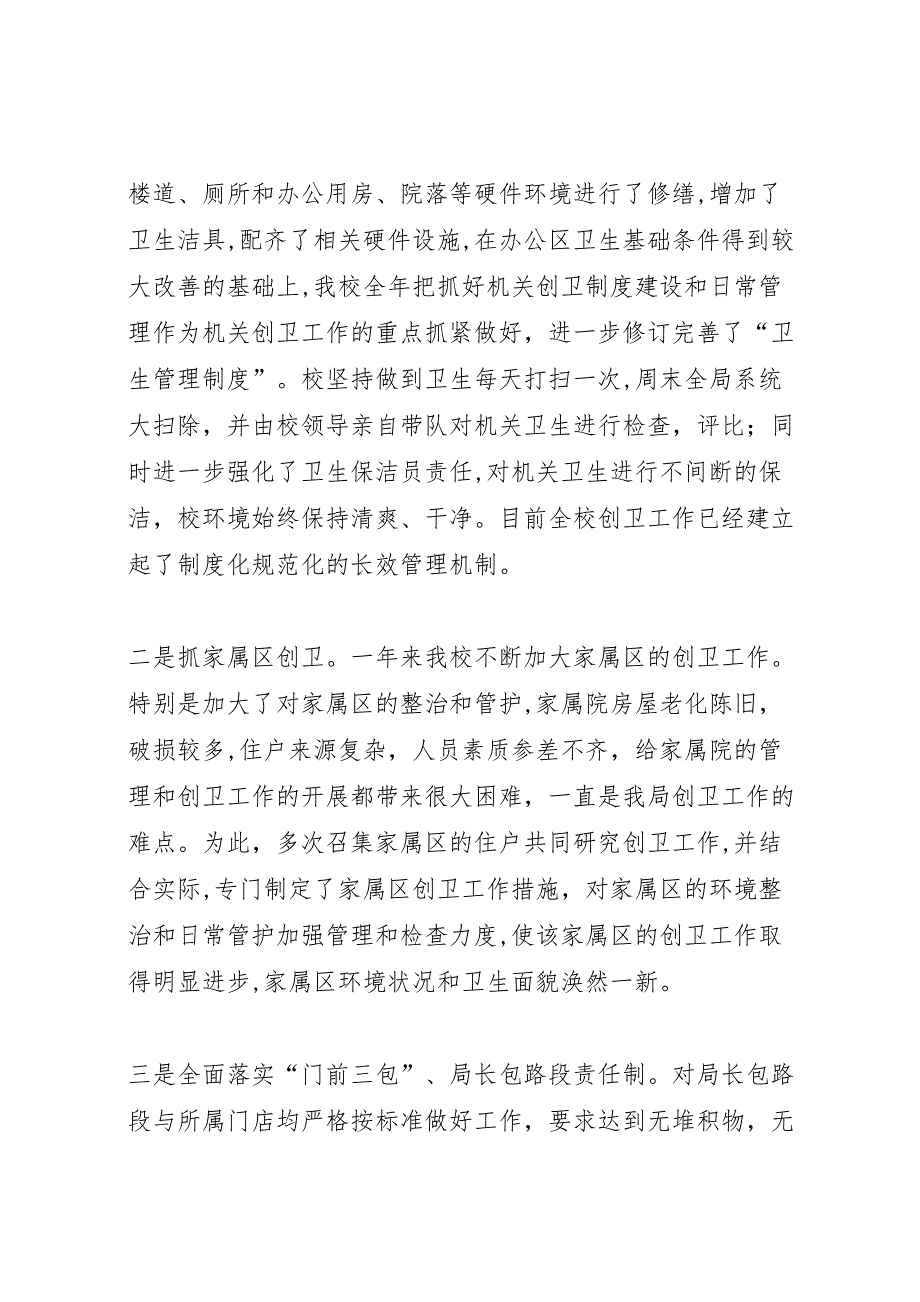 楼道、厕所和办公用房、院落等硬件环境进行了修缮,增加了
卫生洁具,配齐了相关硬件设施,在办公区卫生基础条件得到较
大改善的基础上,我校全年把抓好机关创卫制度建设和日常管
理作为机关创卫工作的重点抓紧做好，进一步修订完善了“卫
生管理制度”。校坚持做到卫生每天打扫一次,周末全局系统
大扫除，并由校领导亲自带队对机关卫生进行检查，评比；同
时进一步强化了卫生保洁员责任,对机关卫生进行不间断的保
洁，校环境始终保持清爽、干净。目前全校创卫工作已经建立
起了制度化规范化的长效管理机制。
二是抓家属区创卫。一年来我校不断加大家属区的创卫工作。
特别是加大了对家属区的整治和管护,家属院房屋老化陈旧，
破损较多,住户来源复杂，人员素质参差不齐，给家属院的管
理和创卫工作的开展都带来很大困难，一直是我局创卫工作的
难点。为此，多次召集家属区的住户共同研究创卫工作,并结
合实际,专门制定了家属区创卫工作措施，对家属区的环境整
治和日常管护加强管理和检查力度,使该家属区的创卫工作取
得明显进步,家属区环境状况和卫生面貌涣然一新。
三是全面落实“门前三包”、局长包路段责任制。对局长包路
段与所属门店均严格按标准做好工作，要求达到无堆积物，无